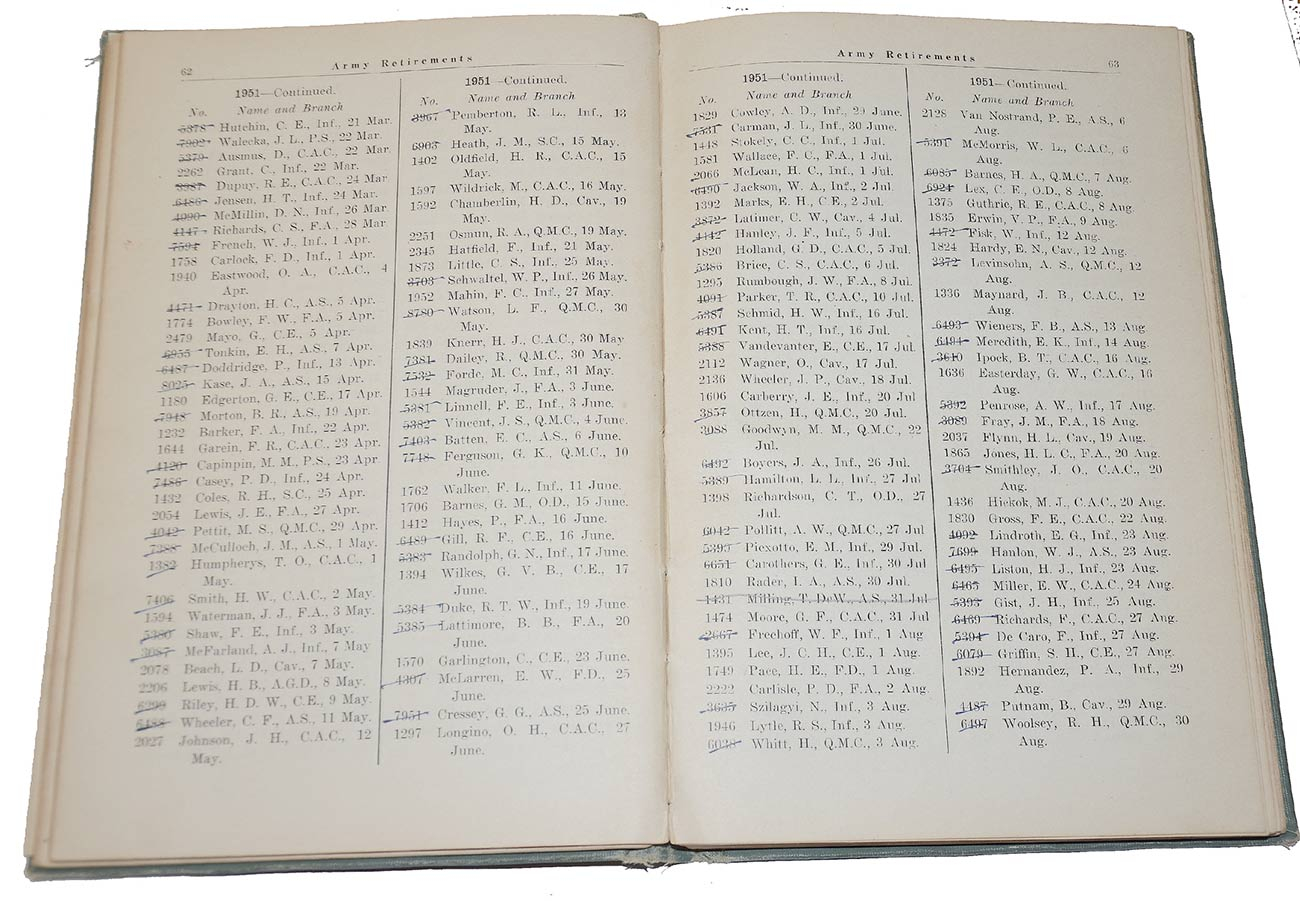 62
Army Retirements
1951—Continued.
No. Name and Branch
5378 Hutchin, C. E., Inf., 21 Mar.
7902 Walecka, J. L., P.S., 22 Mar.
5379 Ausmus, D., C.A.C., 22 Mar.
2262 Grant, C., Inf., 22 Mar.
Dupuy, R. E., C.A.C., 24 Mar.
6486 Jensen, H. T., Inf., 24 Mar.
4090 McMillin, D. N., Inf., 26 Mar.
4147 Richards, C. S., F.A., 28 Mar.
7594 French, W. J., Inf., 1 Apr.
1758 Carlock, F. D., Inf., 1 Apr.
1940 Eastwood, O. A., C.A.C., 4
Apr.
4471 Drayton, H. C., A.S., 5 Apr.
1774 Bowley, F. W., F.A., 5 Apr.
2479 Mayo, G., C.E., 5 Apr.
6955 Tonkin, E. H., A.S., 7 Apr.
6487 Doddridge, P., Inf., 13 Apr.
8025 Kase, J. A., A.S., 15 Apr.
1180 Edgerton, G. E., C.E., 17 Apr.
7948 Morton, B. R., A.S., 19 Apr.
1232 Barker, F. A., Inf., 22 Apr.
1644 Garcin, F. R., C.A.C., 23 Apr.
4120 Capinpin, M. M., P.S., 23 Apr.
7486 Casey, P. D., Inf., 24 Apr.
1432 Coles, R. H., S.C., 25 Apr.
2054 Lewis, J. E., F.A., 27 Apr.
4042 Pettit, M. S., Q.M.C., 29 Apr.
7388 McCulloch, J. M., A.S., 1 May.
1382 Humpherys, T. O., C.A.C., 1
May.
7406 Smith, H. W., C.A.C., 2 May.
1594 Waterman, J. J., F.A., 3 May.
5380 Shaw, F. E., Inf., 3 May.
3087 McFarland, A. J., Inf., 7 May
2078 Beach, L. D., Cav., 7 May.
2206 Lewis, H. B., A.G.D., 8 May.
6299 Riley, H. D. W., C.E., 9 May.
6488 Wheeler, C. F., A.S., 11 May.
2027 Johnson, J. H., C.A.C., 12
May.
1951—Continued.
No. Name and Branch
3967 Pemberton, R. L., Inf., 13
May.
6903 Heath, J. M., S.C., 15 May.
1402 Oldfield, H. R., C.A.C., 15
May.
1597 Wildrick, M., C.A.C., 16 May.
1592 Chamberlin, H. D., Cav., 19
May.
2251 Osmun, R. A., Q.M.C., 19 May.
2345 Hatfield, F., Inf., 21 May.
1873 Little, C. S., Inf., 25 May.
3703 Schwaltel, W. P., Inf., 26 May.
1952 Mahin, F. C., Inf., 27 May.
8780 Watson, L. F., Q.M.C., 30
May.
1839 Knerr, H. J., C.A.C., 30 May
7381 Dailey, R., Q.M.C., 30 May.
7532 Forde, M. C., Inf., 31 May.
1544 Magruder, J., F.A., 3 June.
5381 Linnell, F. E., Inf., 3 June.
5382 Vincent, J. S., Q.M.C., 4 June.
7403 Batten, E. C., A.S., 6 June.
7748 Ferguson, G. K., Q.M.C., 10
June.
1762 Walker, F. L., Inf., 11 June.
1706 Barnes, G. M., O.D., 15 June.
1412 Hayes, P., F.A., 16 June.
6489 Gill, R. F., C.E., 16 June.
5383 Randolph, G. N., Inf., 17 June.
1394 Wilkes, G. V. B., C.E., 17
June.
5384 Duke, R. T. W., Inf., 19 June
5385 Lattimore, B. B., F.A., 20
June.
1570 Garlington, C., C.E., 23 June.
4307 McLarren, E. W., F.D., 25
June.
7951 Cressey, G. G., A.S., 25 June.
1297 Longino, O. H., C.A.C., 27
June.
Army Retirements
63
1951—Continued.
No. Name and Branch
1829 Cowley, A. D., Inf., 29 June.
7531 Carman, J. L., Inf., 30 June.
1448 Stokely, C. C., Inf., 1 Jul.
1581 Wallace, F. C., F.A., 1 Jul.
2066 McLean, H. C., Inf., 1 Jul.
6490 Jackson, W. A., Inf., 2 Jul.
1392 Marks, E. H., C.E., 2 Jul.
3872 Latimer, C. W., Cav., 4 Jul.
4142 Hanley, J. F., Inf., 5 Jul.
1820 Holland, G. D., C.A.C., 5 Jul.
5386 Brice, C. S., C.A.C., 6 Jul.
1295 Rumbough, J. W., F.A., 8 Jul.
4091 Parker, T. R., C.A.C., 10 Jul.
5387 Schmid, H. W., Inf., 16 Jul.
6491 Kent, H. T., Inf., 16 Jul.
5388 Vandevanter, E., C.E., 17 Jul.
2112 Wagner, O., Cav., 17 Jul.
2136 Wheeler, J. P., Cav., 18 Jul.
1606 Carberry, J. E., Inf., 20 Jul
3857 Ottzen, H., Q.M.C., 20 Jul.
3088 Goodwyn, M. M., Q.M.C., 22
Jul.
6492 Boyers, J. A., Inf., 26 Jul.
5389 Hamilton, L. L., Inf., 27 Jul
1398 Richardson, C. T., O.D., 27
Jul.
6042 Pollitt, A. W., Q.M.C., 27 Jul
Piexotto, E. M., Inf., 29 Jul.
6651 Carothers, G. E., Inf., 30 Jul
1810 Rader, I. A., A.S., 30 Jul.
1431 Milling, T. DeW., A.S., 31 Jul
1474 Moore, G. F., C.A.C., 31 Jul
2667 Freehoff, W. F., Inf., 1 Aug
1395 Lee, J. C. H., C.E., 1 Aug.
1749 Pace, H. E., F.D., 1 Aug.
2222 Carlisle, P. D., F.A., 2 Aug.
3635 Szilagyi, N., Inf., 3 Aug.
1946 Lytle, R. S., Inf., 3 Aug.
6038 Whitt, H., Q.M.C., 3 Aug.
1951—Continued.
No. Name and Branch
2128 Van Nostrand, P. E., A.S., 6
Aug.
5391 McMorris, W. L., C.A.C., 6
Aug.
6085 Barnes, H. A., Q.M.C., 7 Aug.
6924 Lex, C. E., O.D., 8 Aug.
1375 Guthrie, R. E., C.A.C., 8 Aug.
1835 Erwin, V. P., F.A., 9 Aug.
4472 Fisk, W., Inf., 12 Aug.
1824 Hardy, E. N., Cav., 12 Aug.
3372 Levinsohn, A. S., Q.M.C., 12
Aug.
1336 Maynard, J. B., C.A.C., 12
Aug.
6493 Wieners, F. B., A.S., 13 Aug.
6494 Meredith, E. K., Inf., 14 Aug.
3610 Ipock, B. T., C.A.C., 16 Aug.
1636 Easterday, G. W., C.A.C., 16
Aug.
5392 Penrose, A. W., Inf., 17 Aug.
3089 Fray, J. M., F.A., 18 Aug.
2037 Flynn, H. L., Cav., 19 Aug.
1865 Jones, H. L. C., F.A., 20 Aug.
3704 Smithley, J. O., C.A.C., 20
Aug.
1436 Hickok, M. J., C.A.C., 20 Aug.
1830 Gross, F. E., C.A.C., 22 Aug.
4092 Lindroth, E. G., Inf., 23 Aug.
7699 Hanlon, W. J., A.S., 23 Aug.
6495 Liston, H. J., Inf., 23 Aug.
6465 Miller, E. W., C.A.C., 24 Aug.
5393 Gist, J. H., Inf., 25 Aug.
6469 Richards, F., C.A.C., 27 Aug.
5394 De Caro, F., Inf., 27 Aug.
6079 Griffin, S. H., C.E., 27 Aug.
1892 Hernandez, P. A., Inf., 29
Aug.
4487 Putnam, B., Cav., 29 Aug.
6497 Woolsey, R. H., Q.M.C., 30
Aug.